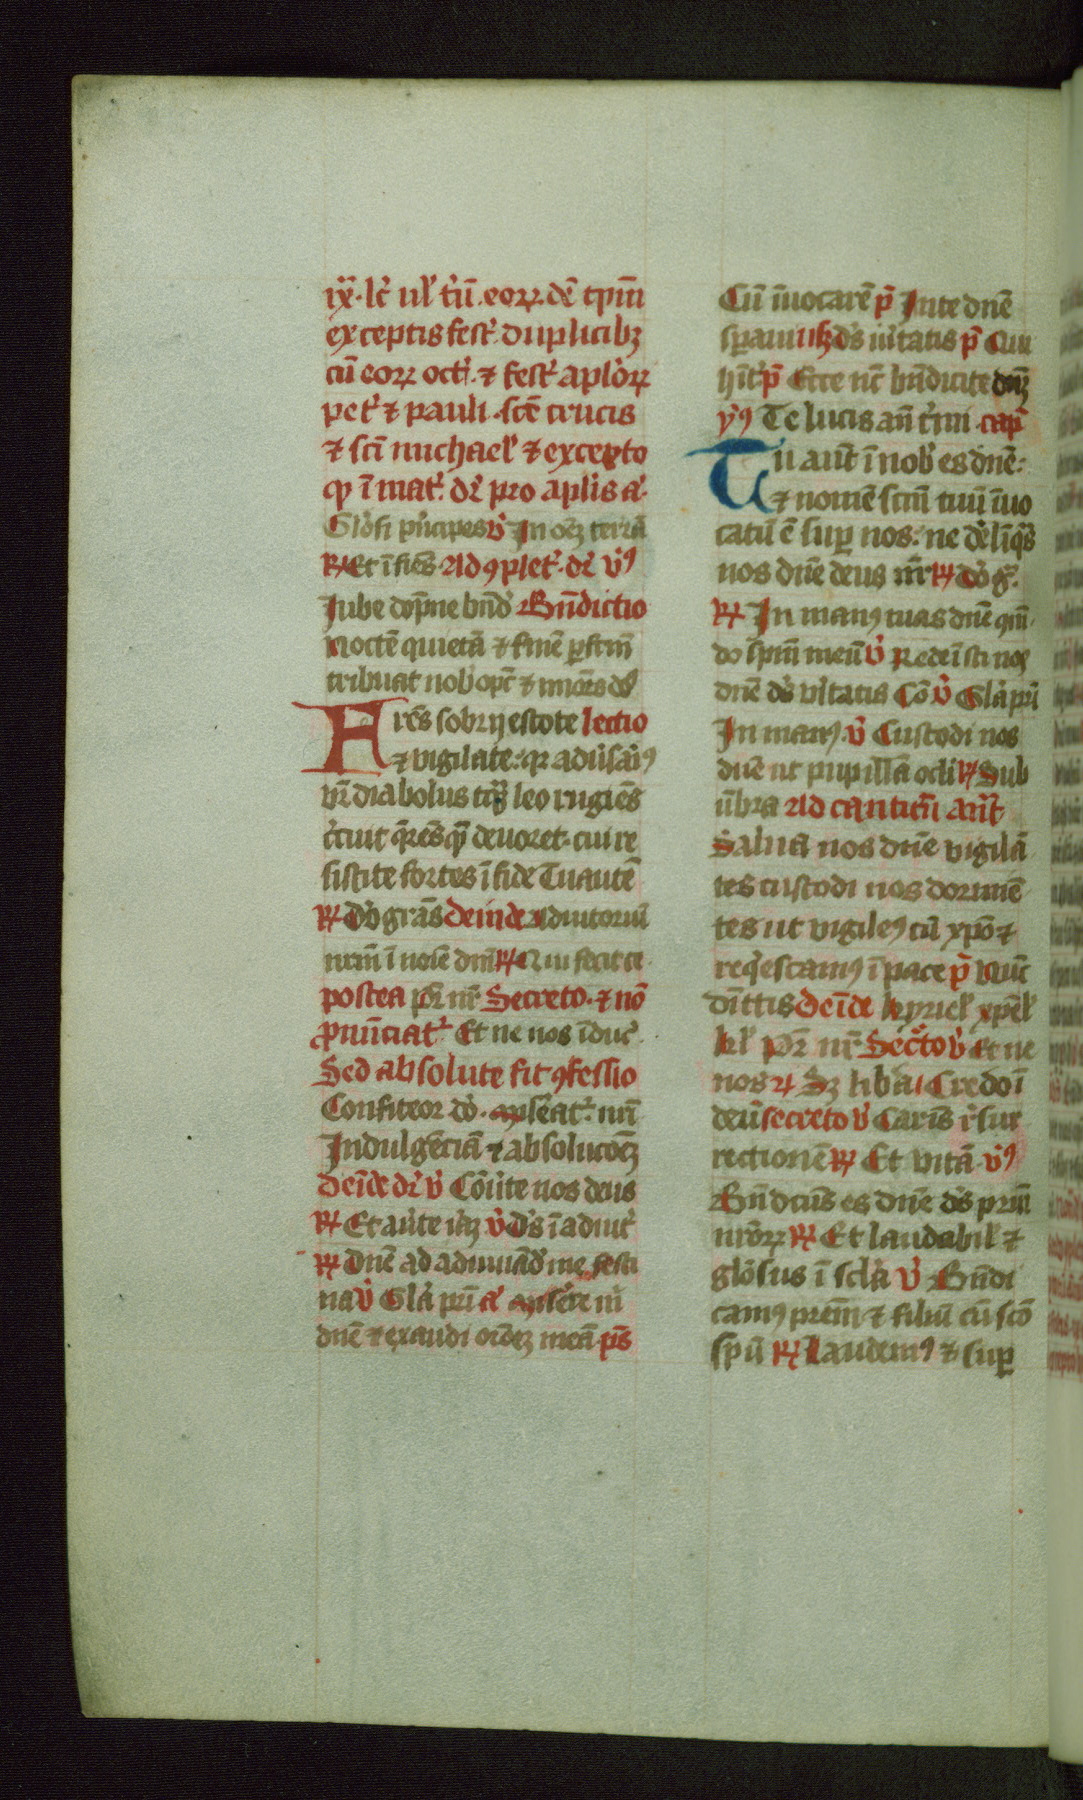 ix. lc̄ ul̓ t̓ū. eoꝝ. dē tp̄m̄
exceptis fest̓ duplicibꝫ
cū eoꝝ oct̓. ⁊ fest̓ apl̓oꝝ
pet̓ ⁊ pauli. sc̄e crucis
⁊ sc̄i michael̓ ⁊ excepto
ꝙ ī mat̓. dr̄ pro apl̓is a͞
Glōsi p̓ncipes v̓ In oēꝫ terrā
℟ Et ī fiēs Ad ꝯplet̓. dr̄ v̓ꝰ
Jube dop̄ne bn̄d̓ Bn̄dictio
noctē quietā ⁊ finē ꝑfcm̄
tribuat nob̓ op̄c ⁊ m̄iors ds̓
Frēs sobrij estote lectio
⁊ vigilate: qꝛ adu̓sari̓ꝰ
vr̄ diabolus tāqꝫ leo rugiēs
c̓cuit q̄rēs quē deuoret. cui re
sistite fortes ī fide Tu autē
℟ Dō grās deinde Adiutoriū
nrm̄ ī noīe dn̄i ℟ Qui fecit ce
postea pr̄ nr̄ Secreto. ⁊ nō
ꝓnūciat̓ Et ne nos īduc̓.
Sed absolute fit ꝯfessio
Confiteor dō. mis̓eat̓. nr̄i
Indulgēciā ⁊ absolucōeꝫ
deīde dr̄ v̓ Cōu̓te nos deus
℟ Et au̓te irā v̓ Ds̓ ī adiut̓
℟ Dn̄e ad adiuuādū me festi
na v̓ Glā pr̄i a͞ mis̓ere m̄
dn̄e ⁊ exaudi orōeꝫ meā ps̄
Cū īuocarē p̄ In te dn̄e
sꝑaui usqꝫ ds̓ u̓itatis p̄ Qui
h̄it̓ p̄ Ecce nc̄ bn̄dicite dn̄ꝫ
ym̄ꝰ Te lucis an̄ t̓mi. cap̄
Tu aut̄ ī nob̓ es dn̄e:
⁊ nomē scm̄ tuū īuo
catū ē suꝑ nos: ne derelīq̓s
nos dn̄e deus nr̄ ℟ dō gr̄.
℟ In manꝰ tuas dn̄e ꝯm̄
do spm̄ meū v̓ Redemisti nos
dn̄e ds̓ v̓itatis Cō v̓ Glā pr̄i
In manꝰ. v̓ Custodi nos
dn̄e ut pupillā ocl̓i ℟ Sub
ūbra Ad canticū an̄t
Salua nos dn̄e vigilā
tes custodi nos dormiē
tes ut vigilemꝰ cū xp̄o ⁊
req̓escamꝰ ī pace p̄ Nūc
dīttis deīde kyriel̓ xp̄el̓
kl̓ pr̄ nr̄ Secr̓to v̓ Et ne
nos ℟ Sꝫ lib̓a Credo ī
deū secreto v̓ Carnis r̓sur
rectionē ℟ Et vitā v̓ꝰ
Bn̄dcus̄ es dn̄e ds̓ prm̄
nr̄oꝝ ℟ Et laudabil̓ ⁊
glōsus ī scl̓a v̓ Bn̄di
camꝰ prem̄ ⁊ filiū cū scō
spū ℟ Laudemꝰ ⁊ suꝑ